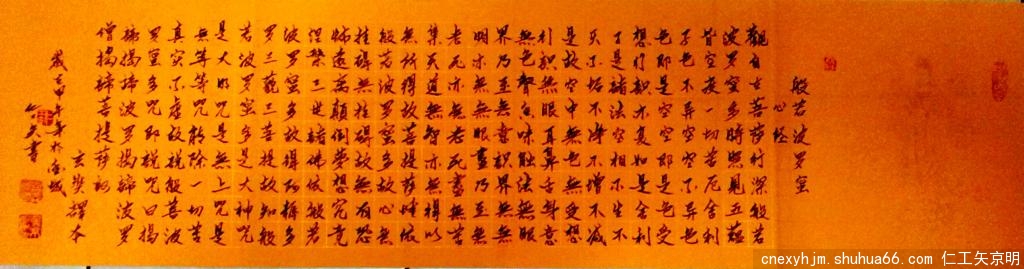 般若波罗蜜
心经
觀自在菩萨行深般若
波罗蜜多時照見五蕴
皆空度一切苦厄舍利
子色不异空空不异色
色即是空空即是色受
想行识亦复如是舍利
子是諸法空相不生不
灭不垢不净不增不减
是故空中無色無受想
行识無眼耳鼻舌身意
無色聲香味触法無眼
界乃至無意识界無無
明亦無無明盡乃至無
老死亦無老死盡無苦
集灭道無智亦無得以
無所得故菩提萨埵依
般若波罗蜜多故心無
挂碍無挂碍故無有恐
怖遠离顛倒夢想究竟
涅槃三世諸佛依般若
波罗蜜多故得阿耨多
罗三藐三菩提故知般
若波罗蜜多是大神咒
是大明咒是無上咒是
無等等咒能除一切苦
真实不虚故說般若波
罗蜜多咒即說咒曰揭
諦揭諦波罗揭諦波罗
僧揭諦菩提萨婆訶
玄奘譯本
歲在甲午年於金城
書
cnexyhjm.shuhua66.com @仁工矢京明